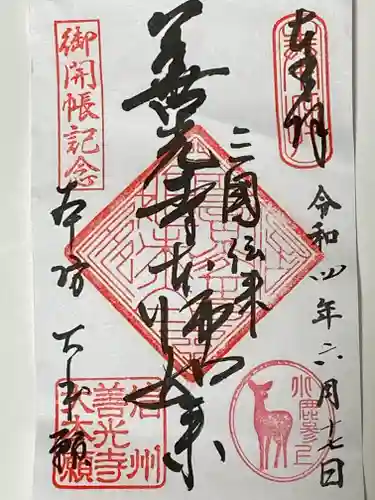 奉拝
令和四年六月十七日
三國伝来
善光寺如来
御開帳記念
本坊 大本願
信州
善光寺
大本願